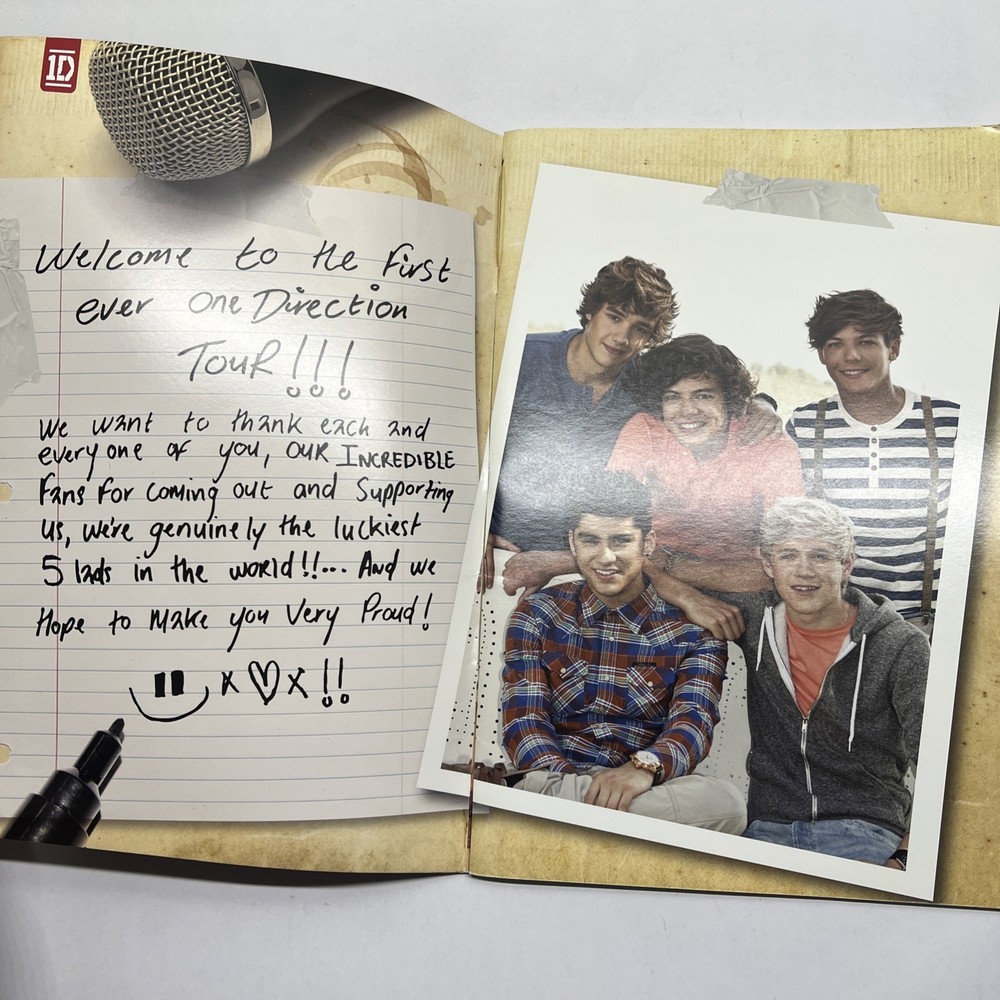 1D
Welcome to the first
ever one Direction
TOUR!!!
We want to thank each and
everyone of you, OUR INCREDIBLE
Fans for coming out and Supporting
us, we're genuinely the luckiest
5 lads in the world!!... And we
Hope to Make you Very Proud!
x♡x!!